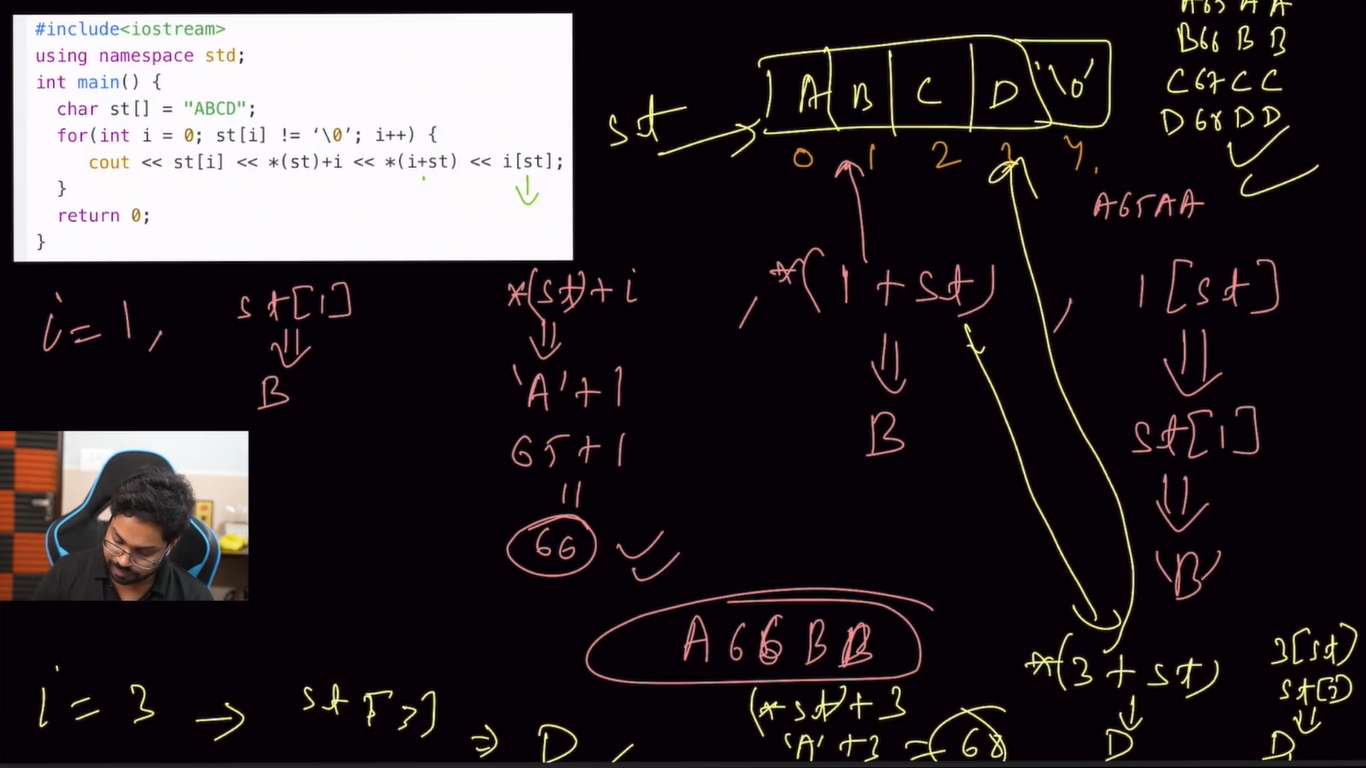 #include<iostream>
using namespace std;
int main() {
char st[] = "ABCD";
for(int i = 0; st[i] != ‘\0’; i++) {
cout << st[i] << *(st)+i << *(i+st) << i[st];
}
return 0;
}
A65 A A
B66 B B
C67 C C
D68 D D
st
A B C D '\0'
0 1 2 3 4
A65AA
i = 1, st[1] *(st)+i , *(1 + st) , 1[st]
B 'A'+1 B st[1]
65+1 'B'
66
A66BB
i = 3 → st[3] ⇒ D,
(*st)+3
'A'+3 = 68
*(3 + st)
D
3[st]
st[3]
D